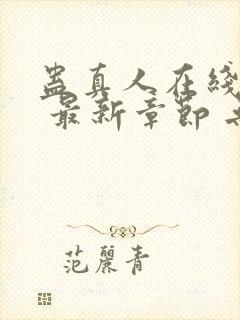 蛊真人在綫
最新章節
范麗青